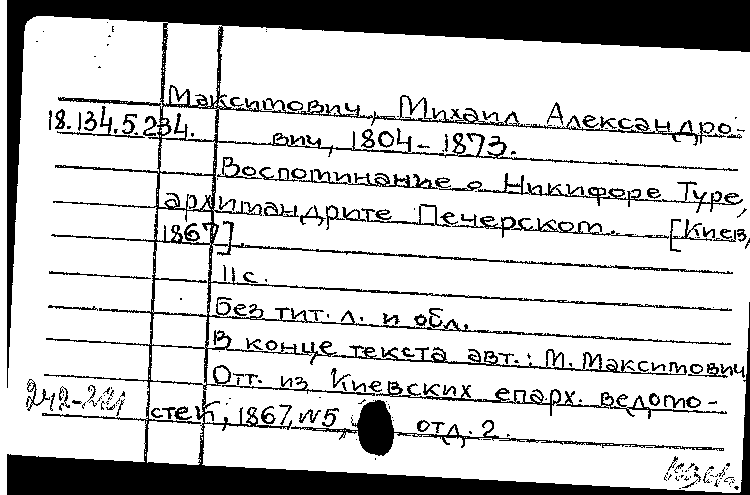 Максимович, Михаил Александро-
18.134.5.234.
вич, 1804-1873.
Воспоминание о Никифоре Туре,
архимандрите Печерском. [Киев,
1867].
11 с.
Без тит. л. и обл.
В конце текста авт.: М. Максимович
Отт. из Киевских епарх. ведомо-
стей, 1867, №5, отд. 2.